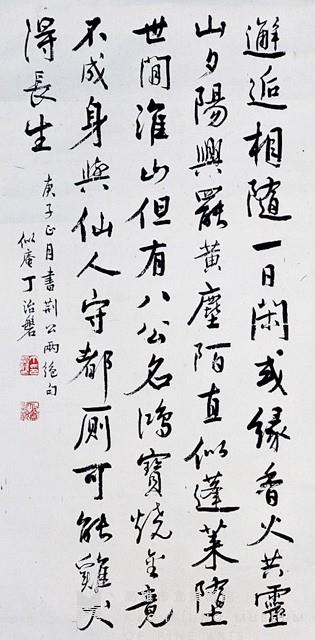 邂逅相隨一日閑或緣香火共靈
山夕陽興罷黃塵陌直似蓬萊墮
世間淮山但有八公名鴻寶燒金竟
不成身與仙人守都廁可能雞犬
得長生
庚子正月書荊公兩絕句
似庵丁治磐